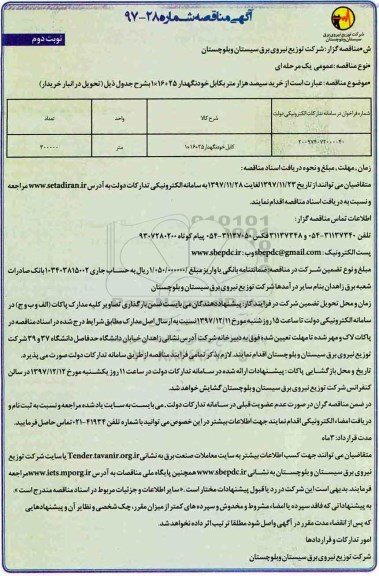 آگهی مناقصه شماره ۲۸-۹۷
شرکت توزیع نیروی برق
سیستان وبلوچستان
نوبت دوم
مناقصه گزار: شرکت توزیع نیروی برق سیستان وبلوچستان
•نوع مناقصه: عمومی یک مرحله ای
•موضوع مناقصه: عبارت است از خرید سیصد هزار متر کابل خودنگهدار ۲۵+۱۶*۱ بشرح جدول ذیل (تحویل در انبار خریدار)
شماره فراخوان در سامانه تدارکات الکترونیکی دولت
شرح کالا
واحد
تعداد
کابل خودنگهدار ۲۵+۱۶*۱
متر
۳۰۰۰۰۰
زمان، مهلت، مبلغ و نحوه دریافت اسناد مناقصه:
متقاضیان می توانند از تاریخ ۱۳۹۷/۱۱/۲۳ لغایت ۱۳۹۷/۱۱/۲۸ به سامانه الکترونیکی تدارکات دولت به آدرس www.setadiran.ir مراجعه
و نسبت به دریافت اسناد مناقصه اقدام نمایند.
اطلاعات تماس مناقصه گزار:
تلفن ۳۱۱۳۷۳۴۰-۰۵۴ و ۳۱۱۳۷۳۴۸ فکس ۳۱۱۳۷۰۵۰-۰۵۴ پیام کوتاه ۹۳۰۷۲۸۰۲۰۰
پست الکترونیک: sbepdc@gmail.com وب: www.sbepdc.ir
مبلغ و نوع تضمین شرکت در مناقصه: ضمانتنامه بانکی یا واریز مبلغ ۱/۰۵۰/۰۰۰/۰۰۰ ریال به حساب جاری ۰۱۰۳۴۰۳۸۱۵۰۰۲ بانک صادرات
شعبه برق زاهدان بنام سایر درآمدها شرکت توزیع نیروی برق سیستان وبلوچستان
زمان و محل تحویل تضمین شرکت در فرایند کار: پیشنهاد دهندگان می بایست ضمن بارگذاری تصاویر کلیه مدارک پاکات (الف و ب و ج) در
سامانه الکترونیکی دولت تا ساعت ۱۵ روز شنبه مورخ ۱۳۹۷/۱۲/۱۱ نسبت به ارسال اصل مدارک مطابق شرایط درج شده در اسناد مناقصه در
پاکات لاک و مهر شده تا مهلت تعیین شده فوق به دبیرخانه شرکت آدرس نشانی زاهدان خیابان دانشگاه حدفاصل دانشگاه ۳۷ و ۳۹ شرکت
توزیع نیروی برق سیستان وبلوچستان اقدام نمایند. لازم بذکر تمامی فرایند مناقصه از طریق سامانه تدارکات دولت صورت می پذیرد.
تاریخ و محل بازگشایی پاکات: پیشنهادات ارائه شده در سامانه تدارکات دولت در ساعت ۱۱ روز یکشنبه مورخ ۱۳۹۷/۱۲/۱۲ در سالن
کنفرانس شرکت توزیع نیروی برق سیستان وبلوچستان گشایش خواهد شد.
در ضمن مناقصه گران در صورت عدم عضویت قبلی در سامانه تدارکات دولت، می بایست به سایت یاد شده مراجعه و نسبت به ثبت نام و
دریافت امضاء الکترونیکی اقدام نمایند جهت اطلاعات بیشتر در این خصوص می توانید با شماره تلفن ۴۱۹۳۴-۰۲۱ تماس حاصل فرمایید.
مدت قرارداد: ۳ماه
متقاضیان می توانند جهت کسب اطلاعات بیشتر به سایت معاملات صنعت برق به نشانی Tender.tavanir.org.ir یا سایت شرکت توزیع
نیروی برق سیستان وبلوچستان به نشانی www.sbepdc.ir همچنین پایگاه ملی مناقصات به آدرس www.iets.mporg.ir مراجعه
فرمایند. بدیهی است این شرکت در رد یا قبول پیشنهادات مختار است. «سایر اطلاعات و جزئیات مربوط در اسناد مناقصه مندرج است».
به پیشنهاداتی که فاقد سپرده یا امضاء مشروط و مخدوش و سپرده های کمتر از میزان مقرر، چک شخصی و نظایر آن و پیشنهادهایی
که پس از انقضاء مدت مقرر در آگهی واصل شود مطلقا ترتیب اثر داده نخواهد شد.
امور تدارکات و قراردادها
شرکت توزیع نیروی برق سیستان وبلوچستان